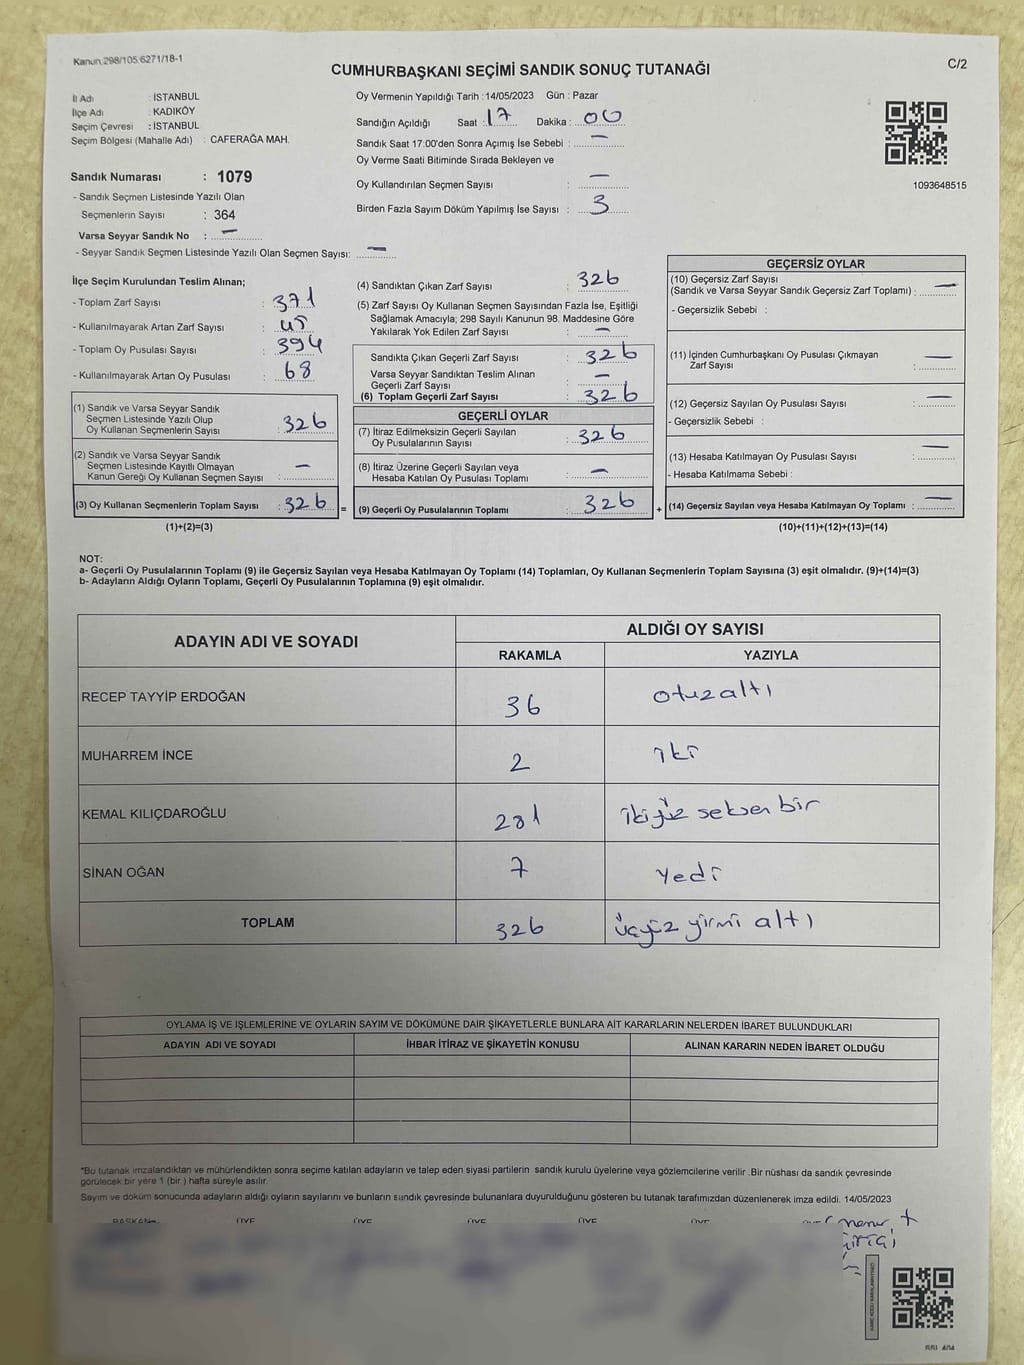 Kanun.298/105.6271/18-1
C/2
CUMHURBAŞKANI SEÇİMİ SANDIK SONUÇ TUTANAĞI
İl Adı : İSTANBUL
İlçe Adı : KADIKÖY
Seçim Çevresi : İSTANBUL
Seçim Bölgesi (Mahalle Adı) : CAFERAĞA MAH.
Sandık Numarası : 1079
- Sandık Seçmen Listesinde Yazılı Olan
Seçmenlerin Sayısı : 364
Varsa Seyyar Sandık No : —
- Seyyar Sandık Seçmen Listesinde Yazılı Olan Seçmen Sayısı: —
Oy Vermenin Yapıldığı Tarih : 14/05/2023 Gün : Pazar
Sandığın Açıldığı Saat : 17 Dakika : 00
Sandık Saat 17:00'den Sonra Açımış İse Sebebi : —
Oy Verme Saati Bitiminde Sırada Bekleyen ve
Oy Kullandırılan Seçmen Sayısı : —
Birden Fazla Sayım Döküm Yapılmış İse Sayısı : 3
1093648515
İlçe Seçim Kurulundan Teslim Alınan;
- Toplam Zarf Sayısı : 371
- Kullanılmayarak Artan Zarf Sayısı : 45
- Toplam Oy Pusulası Sayısı : 394
- Kullanılmayarak Artan Oy Pusulası : 68
(1) Sandık ve Varsa Seyyar Sandık
Seçmen Listesinde Yazılı Olup
Oy Kullanan Seçmenlerin Sayısı : 326
(2) Sandık ve Varsa Seyyar Sandık
Seçmen Listesinde Kayıtlı Olmayan
Kanun Gereği Oy Kullanan Seçmen Sayısı : —
(3) Oy Kullanan Seçmenlerin Toplam Sayısı : 326 =
(1)+(2)=(3)
(4) Sandıktan Çıkan Zarf Sayısı : 326
(5) Zarf Sayısı Oy Kullanan Seçmen Sayısından Fazla İse, Eşitliği
Sağlamak Amacıyla; 298 Sayılı Kanunun 98. Maddesine Göre
Yakılarak Yok Edilen Zarf Sayısı : —
Sandıkta Çıkan Geçerli Zarf Sayısı : 326
Varsa Seyyar Sandıktan Teslim Alınan
Geçerli Zarf Sayısı : —
(6) Toplam Geçerli Zarf Sayısı : 326
GEÇERLİ OYLAR
(7) İtiraz Edilmeksizin Geçerli Sayılan
Oy Pusulalarının Sayısı : 326
(8) İtiraz Üzerine Geçerli Sayılan veya
Hesaba Katılan Oy Pusulası Toplamı : —
(9) Geçerli Oy Pusulalarının Toplamı : 326 +
GEÇERSİZ OYLAR
(10) Geçersiz Zarf Sayısı
(Sandık ve Varsa Seyyar Sandık Geçersiz Zarf Toplamı) : —
- Geçersizlik Sebebi :
(11) İçinden Cumhurbaşkanı Oy Pusulası Çıkmayan
Zarf Sayısı : —
(12) Geçersiz Sayılan Oy Pusulası Sayısı : —
- Geçersizlik Sebebi :
(13) Hesaba Katılmayan Oy Pusulası Sayısı : —
- Hesaba Katılmama Sebebi :
(14) Geçersiz Sayılan veya Hesaba Katılmayan Oy Toplamı : —
(10)+(11)+(12)+(13)=(14)
NOT:
a- Geçerli Oy Pusulalarının Toplamı (9) ile Geçersiz Sayılan veya Hesaba Katılmayan Oy Toplamı (14) Toplamları, Oy Kullanan Seçmenlerin Toplam Sayısına (3) eşit olmalıdır. (9)+(14)=(3)
b- Adayların Aldığı Oyların Toplamı, Geçerli Oy Pusulalarının Toplamına (9) eşit olmalıdır.
ADAYIN ADI VE SOYADI
ALDIĞI OY SAYISI
RAKAMLA YAZIYLA
RECEP TAYYİP ERDOĞAN 36 otuzaltı
MUHARREM İNCE 2 iki
KEMAL KILIÇDAROĞLU 281 ikiyüz seksen bir
SİNAN OĞAN 7 yedi
TOPLAM 326 üçyüz yirmi altı
OYLAMA İŞ VE İŞLEMLERİNE VE OYLARIN SAYIM VE DÖKÜMÜNE DAİR ŞİKAYETLERLE BUNLARA AİT KARARLARIN NELERDEN İBARET BULUNDUKLARI
ADAYIN ADI VE SOYADI İHBAR İTİRAZ VE ŞİKAYETİN KONUSU ALINAN KARARIN NEDEN İBARET OLDUĞU
*Bu tutanak imzalandıktan ve mühürlendikten sonra seçime katılan adayların ve talep eden siyasi partilerin sandık kurulu üyelerine veya gözlemcilerine verilir .Bir nüshası da sandık çevresinde
görülecek bir yere 1 (bir ) hafta süreyle asılır.
Sayım ve döküm sonucunda adayların aldığı oyların sayılarını ve bunların sandık çevresinde bulunanlara duyurulduğunu gösteren bu tutanak tarafımızdan düzenlenerek imza edildi. 14/05/2023
BAŞKAN ÜYE ÜYE ÜYE ÜYE ÜYE